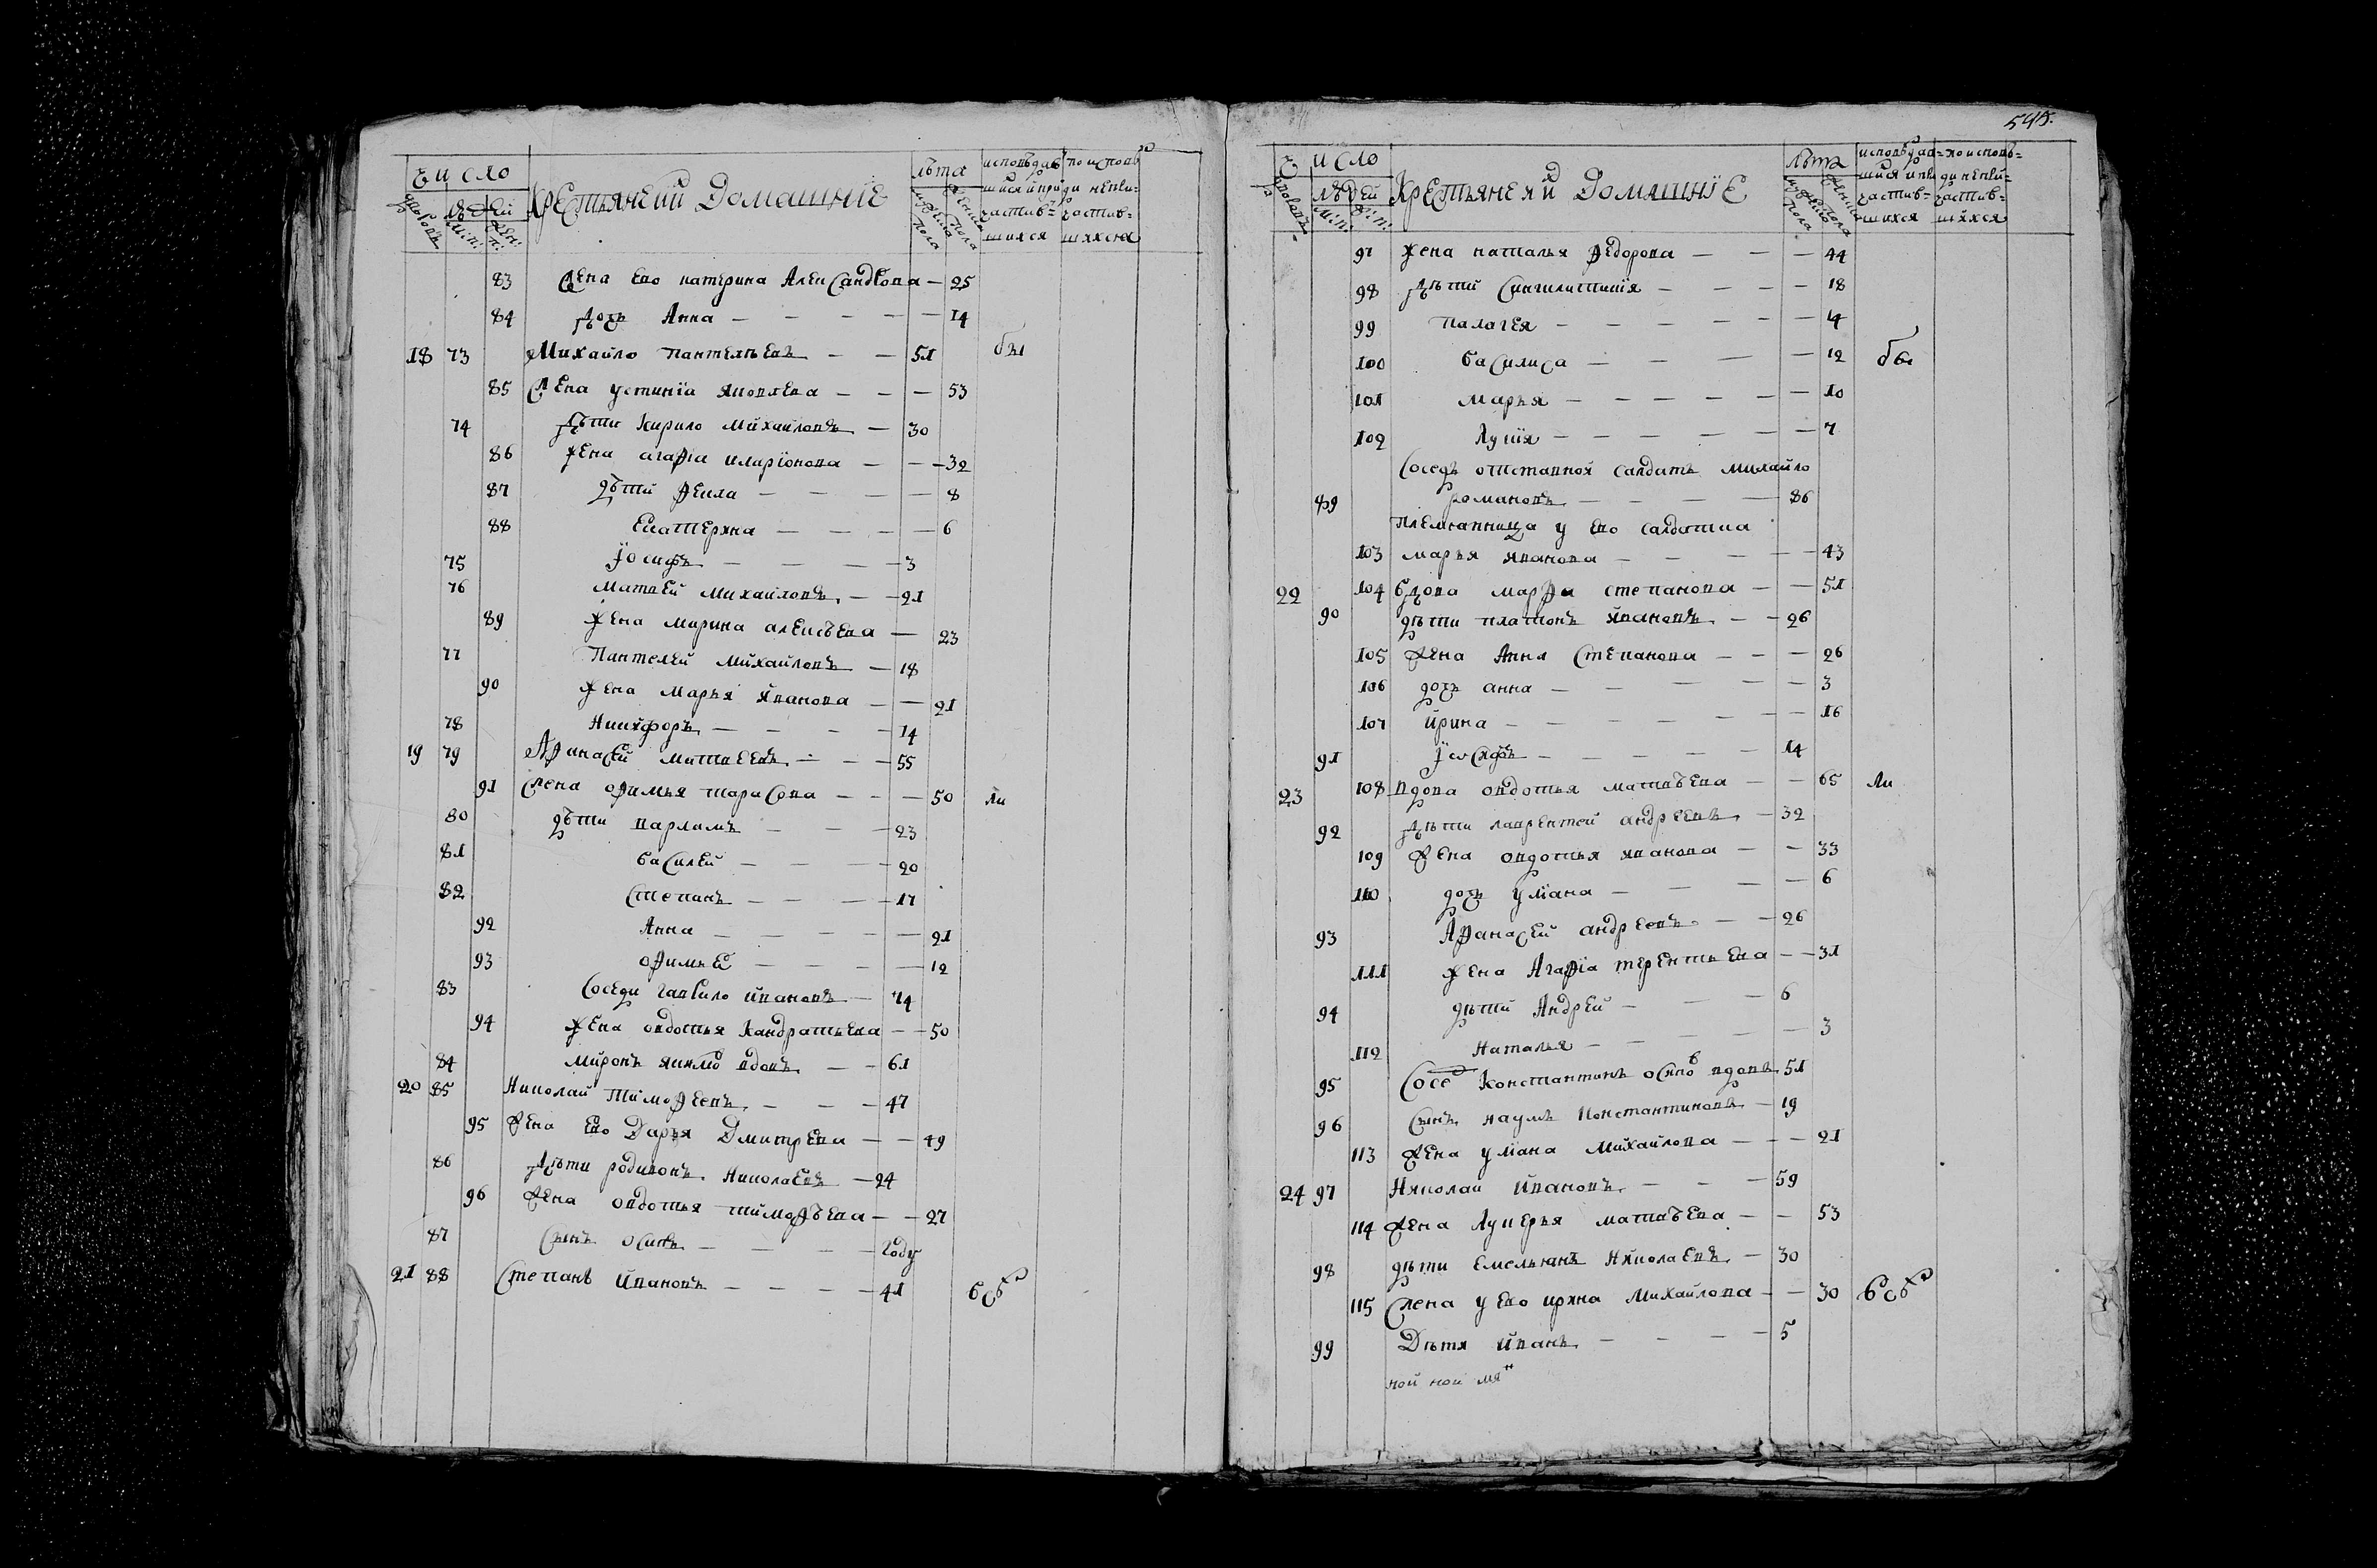 число
дворовъ людей м: п: жен: п:
Крестьяне ии Домашние
лѣта
мужеска пола женска пола
исповѣдав шияся и при частив= шихся
по исповѣ ди непри= частив= шихся
83 жена ево катерина Александрова — 25
84 дочь Анна — 14
18 73 Михайло пантелѣевъ — 51 бы
85 жена устинїа яковлева — 53
74 дѣти кирило михайловъ — 30
86 жена агафїа иларїонова — 32
87 дѣти фекла — 8
88 екатерина — 6
75 їосифъ — 3
76 матвей михайловъ — 21
89 жена марина алексѣева — 23
77 Пантелей михайловъ — 18
90 жена марья иванова — 21
78 Никифоръ — 14
19 79 Афанасей матвеевъ — 55
91 жена офимья тарасова — 50 ли
80 дѣти варламъ — 23
81 василей — 20
82 степанъ — 17
92 Анна — 21
93 офимья — 12
83 соседи гаврило ивановъ — 74
94 жена овдотья кандратьева — 50
84 миронъ якимо вдовъ — 61
20 85 Николай тимофеевъ — 47
95 жена ево Дарья Дмитрева — 49
86 дѣти родионъ николаевъ — 24
96 жена овдотья тимофѣева — 27
87 сынъ осипъ — году
21 88 Степанъ ивановъ — 41
число
дворовъ людей м: п: ж: п:
Крестьяне и Домашнїе
лѣта
мужеска пола женска пола
исповѣдав= шияся и при частив= шихся
по исповѣ= ди непри= частив= шияся
97 жена наталья федорова — 44
98 дѣти сингилитикїя — 18
99 палагея — 14
100 василиса — 12 бы
101 марья — 10
102 лукїя — 7
соседъ отставной салдатъ михайло
89 романовъ — 86
племянница у ево салдатка
103 марья иванова — 43
22 104 вдова марфа степанова — 51
90 дѣти платонъ ивановъ — 26
105 жена Анна Степанова — 26
106 дочь анна — 3
107 ирина — 16
91 їосифъ — 14
23 108 вдова овдотья матвѣева — 65 ли
92 дѣти лаврентей андреевъ — 32
109 жена овдотья иванова — 33
110 дочь улїана — 6
93 Афанасей андреевъ — 26
111 жена Агафїа терентьева — 31
94 дѣти Андрей — 6
112 Наталья — 3
95 сосед константинъ осипо вдовъ 51
96 сынъ наумъ константиновъ — 19
113 жена улїана михайлова — 21
24 97 Николай ивановъ — 59
114 жена лукерья матвѣева — 53
98 дѣти емельянъ николаевъ — 30
115 жена у ево ирина михайлова — 30
99 Дѣтя иванъ — 5